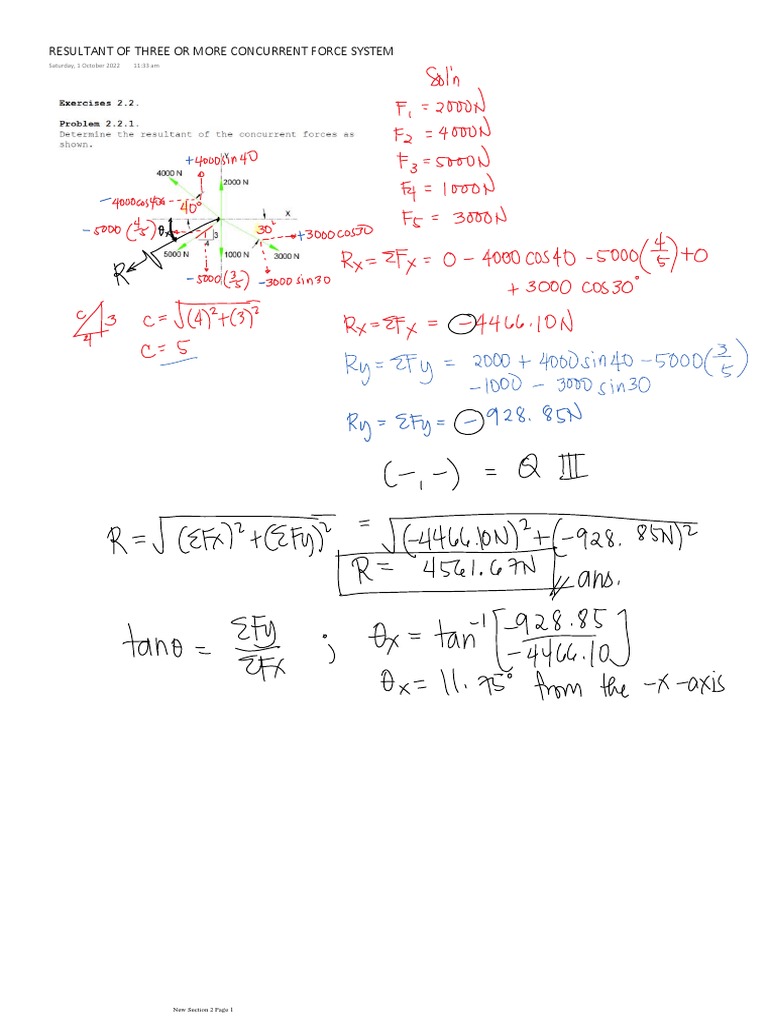 RESULTANT OF THREE OR MORE CONCURRENT FORCE SYSTEM
Saturday, 1 October 2022 11:33 am
Exercises 2.2.
Problem 2.2.1.
Determine the resultant of the concurrent forces as
shown.
Sol'n
F₁ = 2000N
F₂ = 4000N
F₃ = 5000N
F₄ = 1000N
F₅ = 3000N
+4000sin40
Y
4000 N
2000 N
-4000cos40
40°
X
-5000 (4/5)
θx
30°
+3000 cos30
3
4
R
5000 N
1000 N
3000 N
-5000 (3/5)
-3000 sin30
Rx = ΣFx = 0 - 4000 cos40 - 5000(4/5) + 0
+ 3000 cos30°
c
3
4
c = √(4)²+(3)²
c = 5
Rx = ΣFx = -4466.10N
Ry = ΣFy = 2000 + 4000sin40 - 5000(3/5)
-1000 - 3000 sin30
Ry = ΣFy = -928.85N
(-,-) = Q III
R = √(ΣFx)²+(ΣFy)² = √(-4466.10N)²+(-928.85N)²
R = 4561.67N // ans.
tanθ = ΣFy/ΣFx ; θx = tan⁻¹[-928.85/-4466.10]
θx = 11.75° from the -x-axis
New Section 2 Page 1